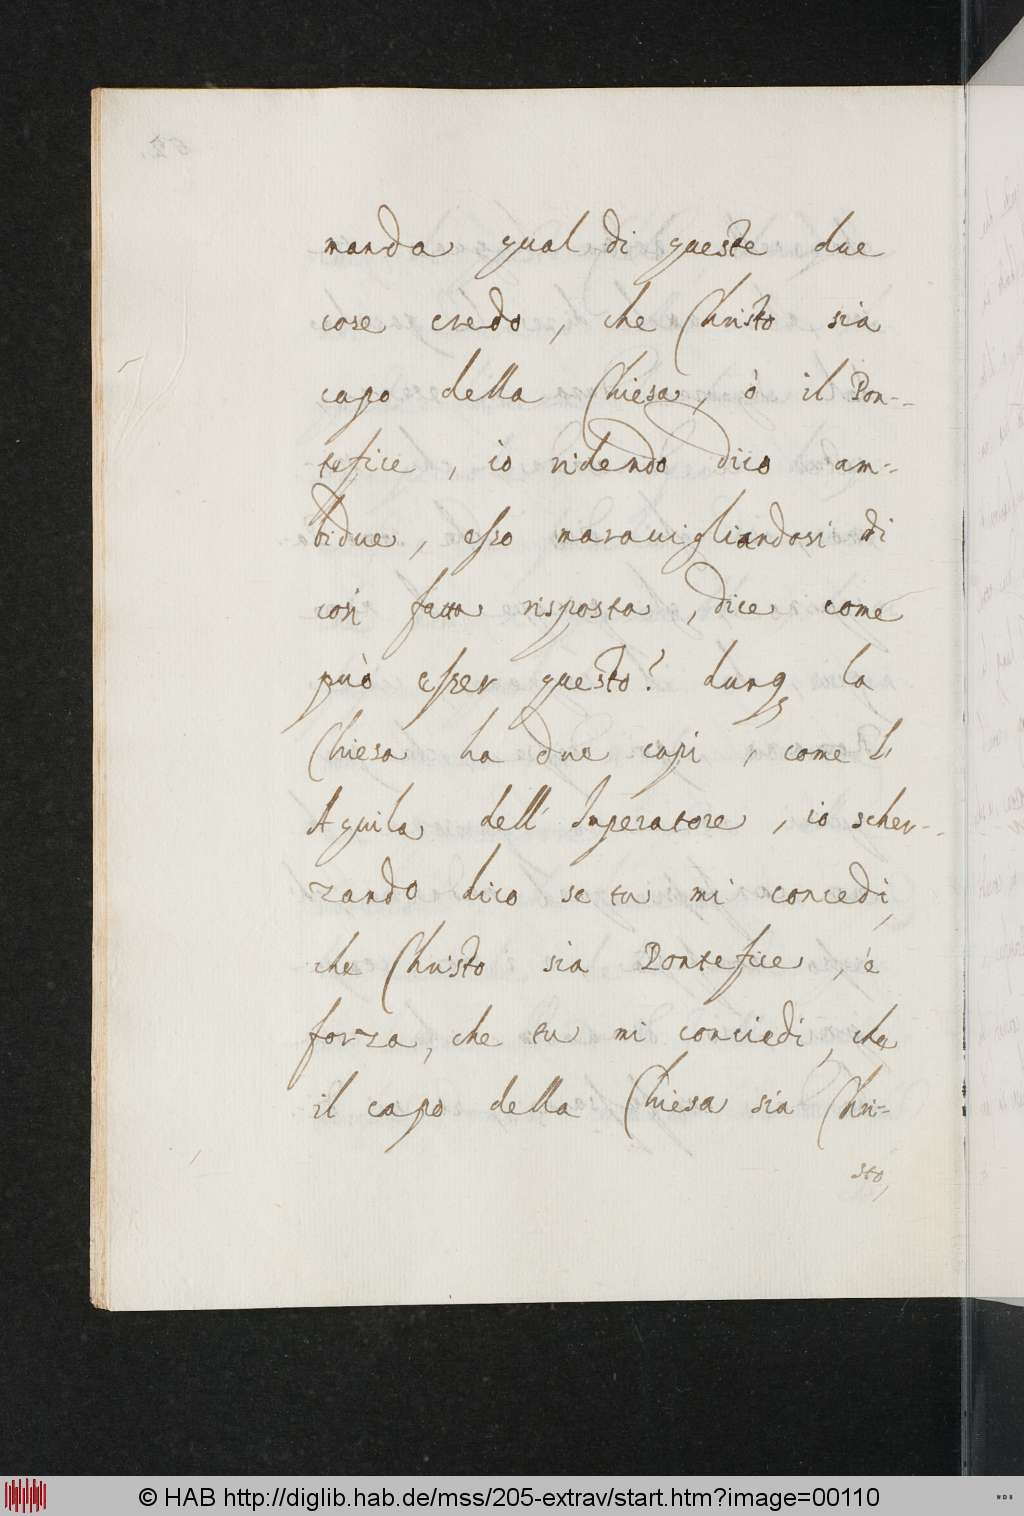 manda qual di queste due
cose credo, che Christo sia
capo della Chiesa, ò il Pon-
tefice, io ridendo dico am-
bidue, esso marauigliandosi di
così fatta risposta, dice come
può esser questo? dunq la
Chiesa ha due capi, come l'
Aquila dell' Imperatore, io scher-
zando dico se tu mi concedi,
che Christo sia Pontefice, è
forza, che tu mi conciedi, che
il capo della Chiesa sia Chri-
sto,
© HAB http://diglib.hab.de/mss/205-extrav/start.htm?image=00110